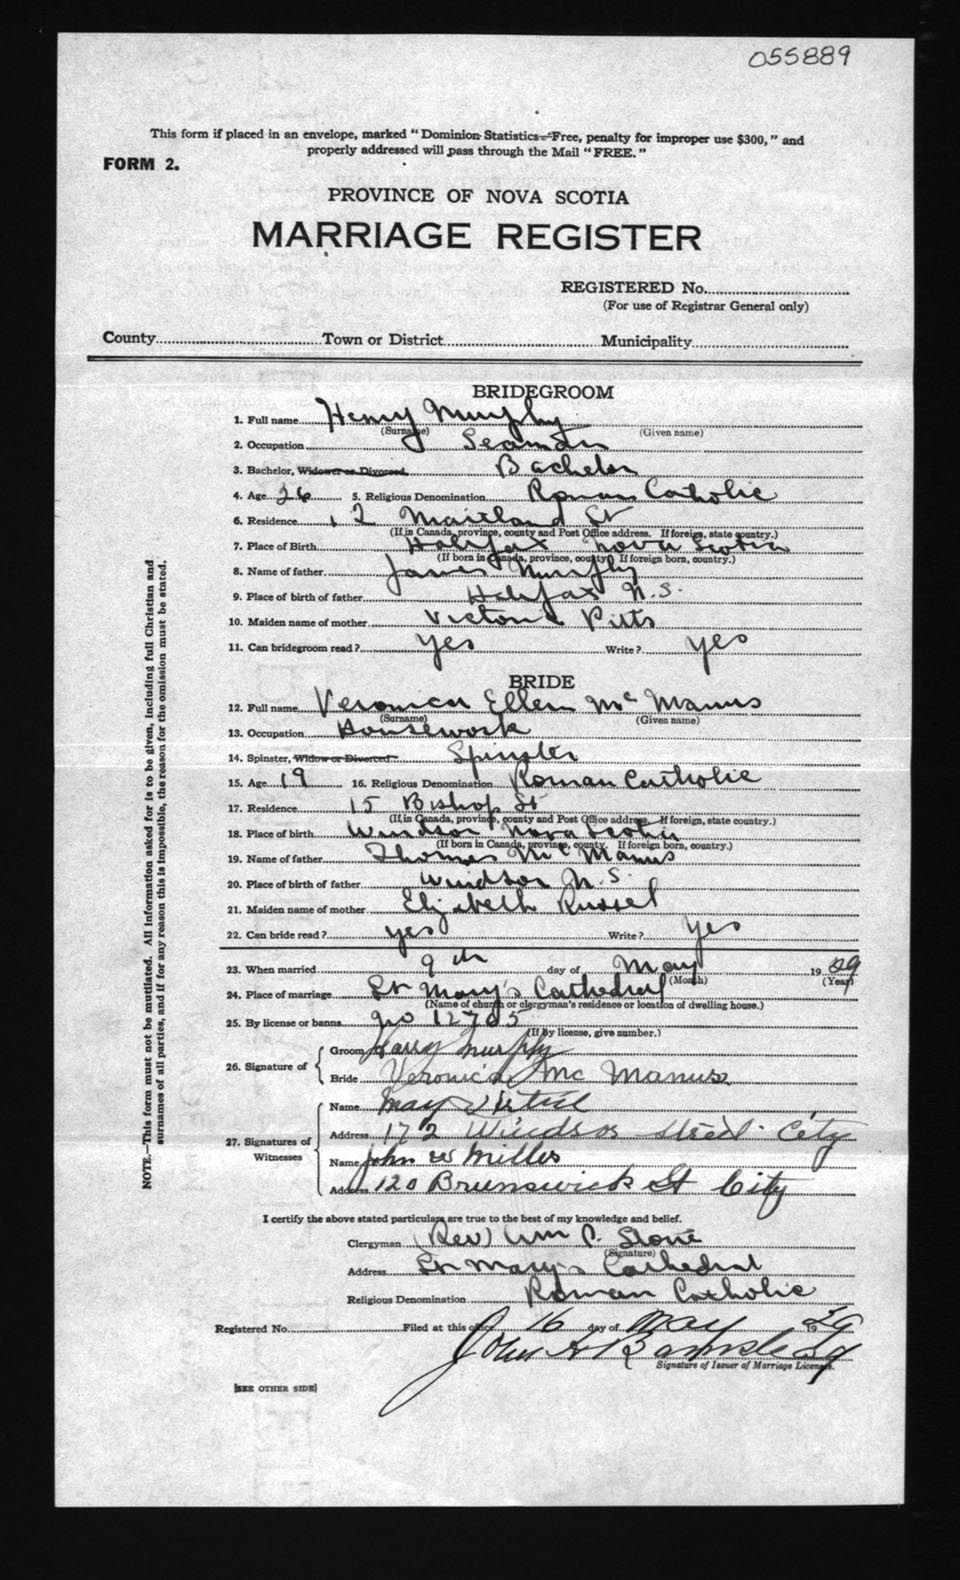 055889
This form if placed in an envelope, marked "Dominion Statistics—Free, penalty for improper use $300," and
properly addressed will pass through the Mail "FREE."
FORM 2.
PROVINCE OF NOVA SCOTIA
MARRIAGE REGISTER
REGISTERED No.
(For use of Registrar General only)
County Town or District Municipality
NOTE.—This form must not be mutilated. All information asked for is to be given, including full Christian and
surnames of all parties, and if for any reason this is impossible, the reason for the omission must be stated.
BRIDEGROOM
1. Full name Henry Murphy
(Surname) (Given name)
2. Occupation Seaman
3. Bachelor, Widower or Divorced. Bachelor
4. Age 26 5. Religious Denomination Roman Catholic
6. Residence 12 Maitland St
(If in Canada, province, county and Post Office address. If foreign, state country.)
7. Place of Birth Halifax Nova Scotia
(If born in Canada, province, county. If foreign born, country.)
8. Name of father James Murphy
9. Place of birth of father Halifax N.S.
10. Maiden name of mother Victoria Pitts
11. Can bridegroom read? yes Write? yes
BRIDE
12. Full name Veronica Ellen McManus
(Surname) (Given name)
13. Occupation Housework
14. Spinster, Widow or Divorced Spinster
15. Age 19 16. Religious Denomination Roman Catholic
17. Residence 15 Bishop St
(If in Canada, province, county and Post Office address. If foreign, state country.)
18. Place of birth Windsor Nova Scotia
(If born in Canada, province, county. If foreign born, country.)
19. Name of father Thomas McManus
20. Place of birth of father Windsor N.S.
21. Maiden name of mother Elizabeth Russel
22. Can bride read? yes Write? yes
23. When married 9th day of May 1929
(Month) (Year)
24. Place of marriage St Mary's Cathedral
(Name of church or clergyman's residence or location of dwelling house.)
25. By license or banns No 12705
(If by license, give number.)
26. Signature of
Groom Harry Murphy
Bride Veronica McManus
27. Signatures of Witnesses
Name May
Address 172 Windsor Street City
Name John W Miller
Address 120 Brunswick St City
I certify the above stated particulars are true to the best of my knowledge and belief.
Clergyman (Rev) Wm P. Stone
(Signature)
Address St Mary's Cathedral
Religious Denomination Roman Catholic
Registered No. Filed at this office 16 day of May 1929
John A
Signature of Issuer of Marriage Licenses.
[SEE OTHER SIDE]